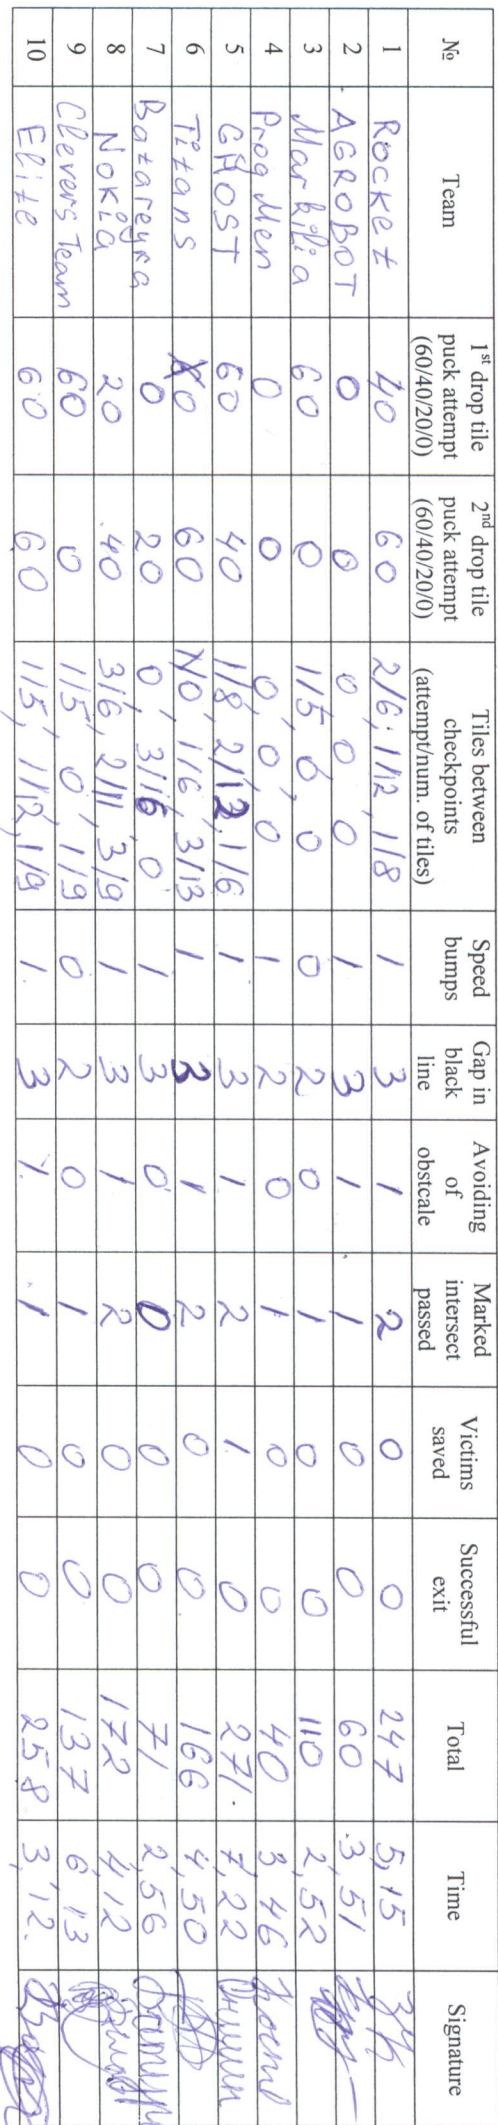 № Team 1st drop tile puck attempt (60/40/20/0) 2nd drop tile puck attempt (60/40/20/0) Tiles between checkpoints (attempt/num. of tiles) Speed bumps Gap in black line Avoiding of obstcale Marked intersect passed Victims saved Successful exit Total Time Signature
1 Rocket 40 60 2/6, 1/12, 1/8 1 3 1 2 0 0 247 5,15
2 AGROBOT 0 0 0 0 0 1 3 1 1 0 0 60 3,51
3 Markilia 60 0 1/5, 0, 0 0 2 0 1 0 0 110 2,52
4 Prog Men 0 0 0, 0, 0 1 2 0 1 0 0 40 3 46
5 GHOST 60 40 1/8, 2/12, 1/6 1 3 1 2 1 0 271. 7,22
6 Titans 0 60 0, 1/6, 3/13 1 3 1 2 0 0 166 4,50
7 Batareyka 0 20 0, 3/16 0 1 3 0 0 0 0 71 2,56
8 Nokia 20 40 3/6, 2/11, 3/9 1 3 1 2 0 0 172 4,12
9 Clevers Team 60 0 1/5, 0, 1/9 0 2 0 1 0 0 137 6,13
10 Elite 60 60 1/5, 1/12, 1/9 1 3 1 1 0 0 258 3,12.